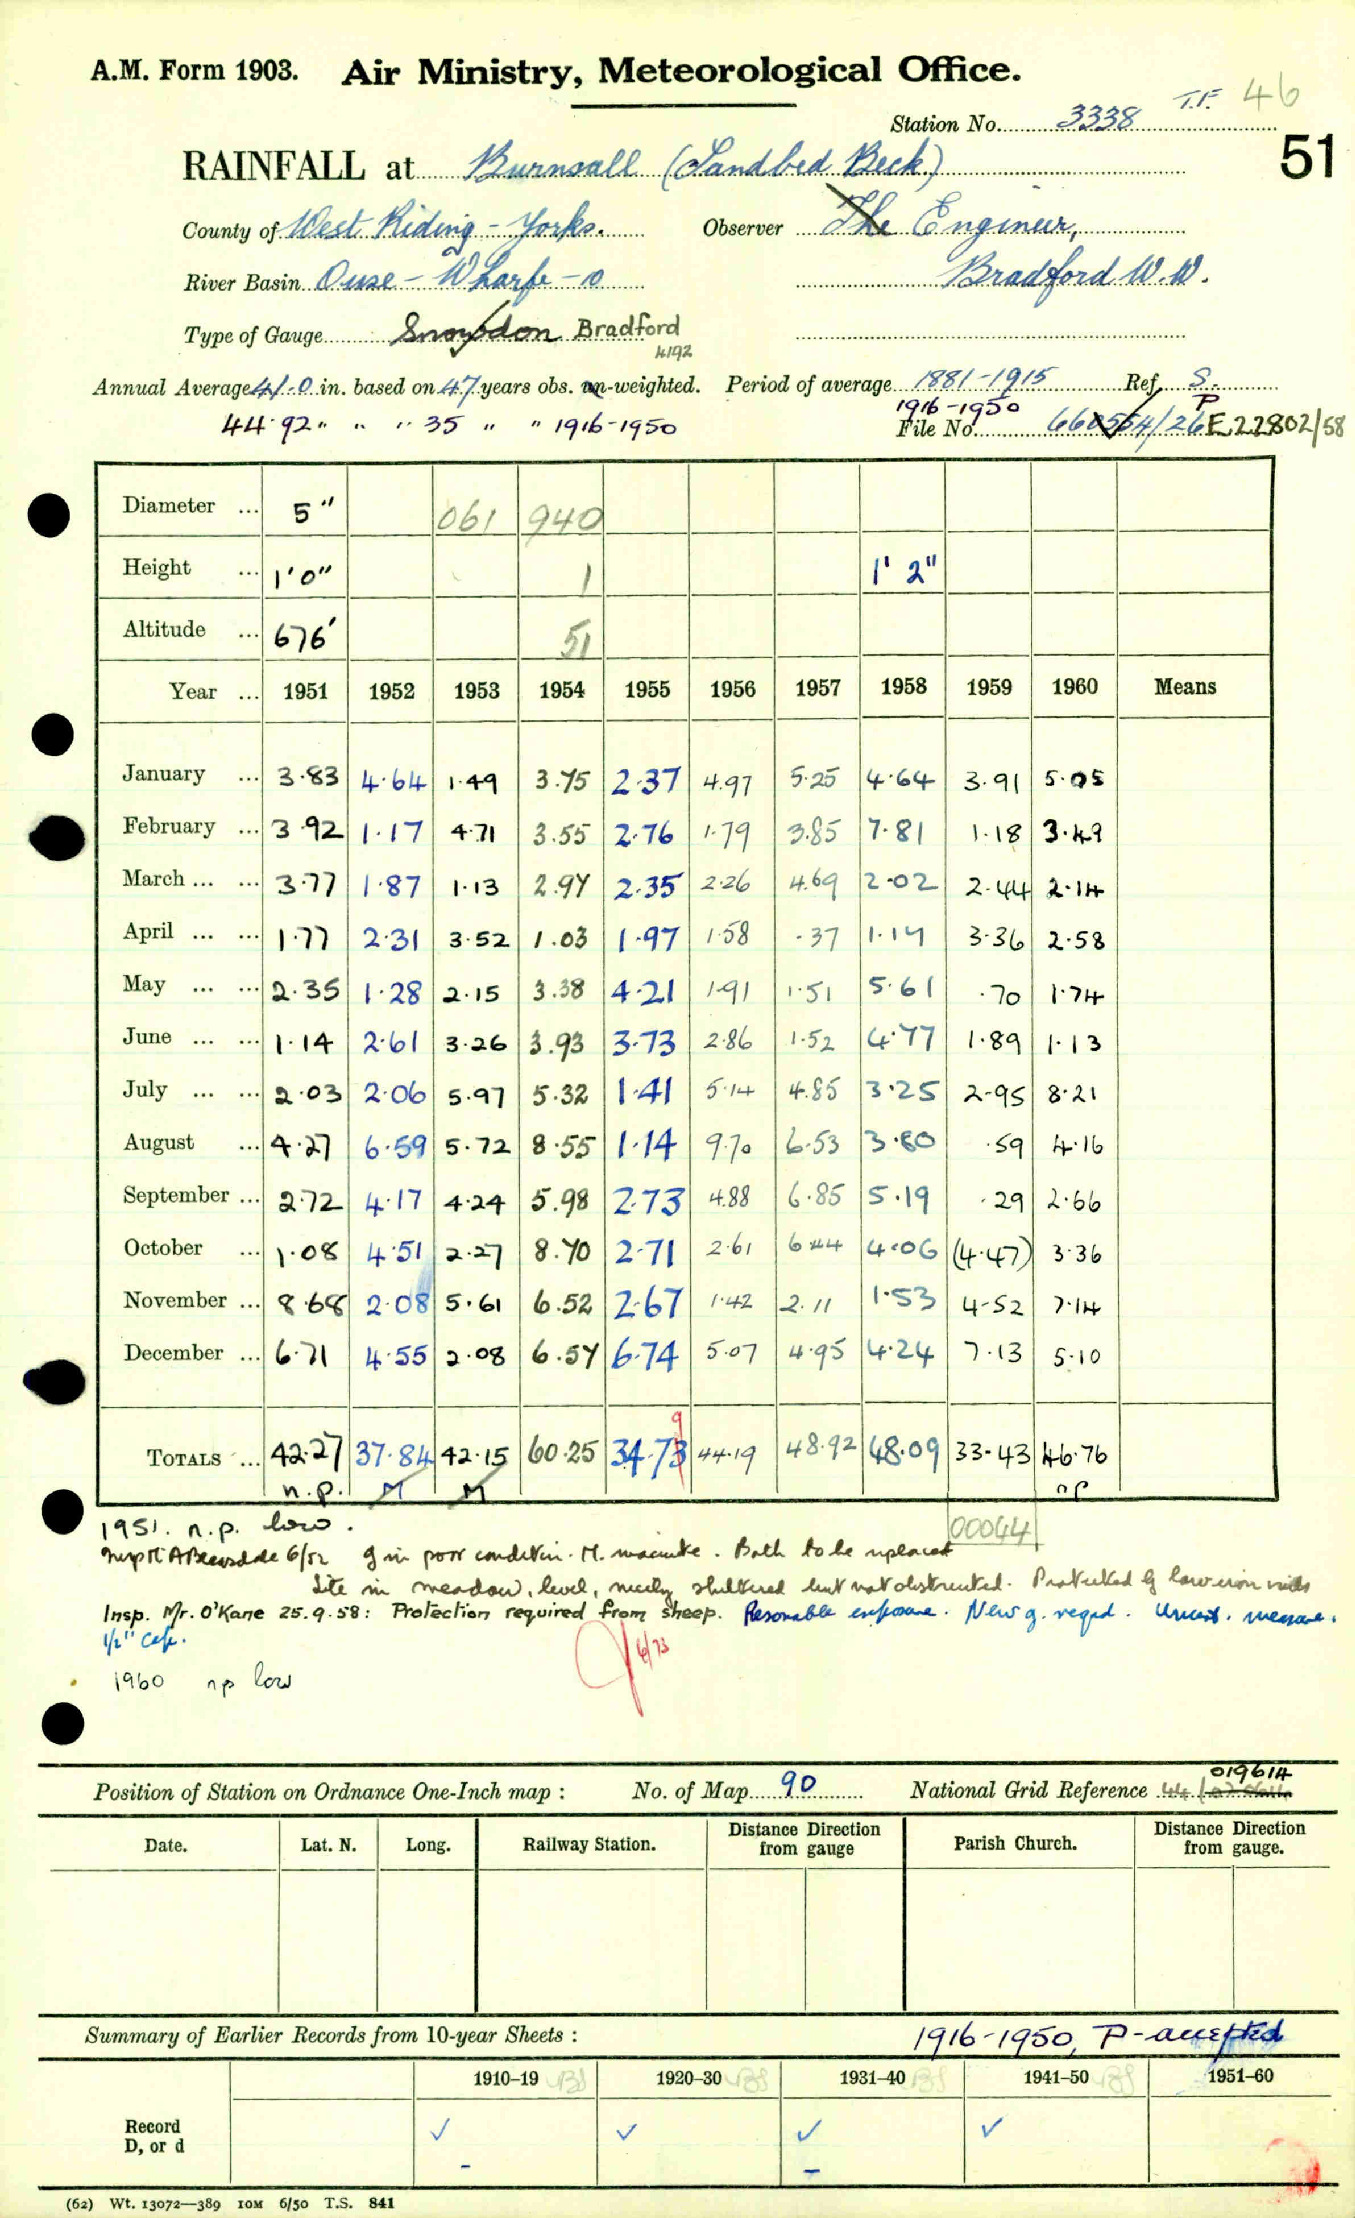 A.M. Form 1903. Air Ministry, Meteorological Office.
T.F. 46
Station No. 3338
51
RAINFALL at Burnsall (Sandbed Beck)
County of West Riding - Yorks. Observer The Engineer,
River Basin Ouse - Wharfe - o Bradford W.W.
Type of Gauge Snowdon Bradford
4192
Annual Average 41.0 in. based on 47 years obs. un-weighted. Period of average 1881-1915 Ref. S.
44.92 " " " 35 " " 1916-1950 1916-1950 P
File No. 660554/26 E22802/58
Diameter ... 5" 061 940
Height ... 1'0" 1 1' 2"
Altitude ... 676' 51
Year ... 1951 1952 1953 1954 1955 1956 1957 1958 1959 1960 Means
January ... 3.83 4.64 1.49 3.75 2.37 4.97 5.25 4.64 3.91 5.05
February ... 3.92 1.17 4.71 3.55 2.76 1.79 3.85 7.81 1.18 3.49
March ... ... 3.77 1.87 1.13 2.97 2.35 2.26 4.69 2.02 2.44 2.14
April ... ... 1.77 2.31 3.52 1.03 1.97 1.58 .37 1.17 3.36 2.58
May ... ... 2.35 1.28 2.15 3.38 4.21 1.91 1.51 5.61 .70 1.74
June ... ... 1.14 2.61 3.26 3.93 3.73 2.86 1.52 4.77 1.89 1.13
July ... ... 2.03 2.06 5.97 5.32 1.41 5.14 4.85 3.25 2.95 8.21
August ... 4.27 6.59 5.72 8.55 1.14 9.70 6.53 3.80 .59 4.16
September ... 2.72 4.17 4.24 5.98 2.73 4.88 6.85 5.19 .29 2.66
October ... 1.08 4.51 2.27 8.70 2.71 2.61 6.44 4.06 (4.47) 3.36
November ... 8.68 2.08 5.61 6.52 2.67 1.42 2.11 1.53 4.52 7.14
December ... 6.71 4.55 2.08 6.57 6.74 5.07 4.95 4.24 7.13 5.10
9
TOTALS ... 42.27 37.84 42.15 60.25 34.73 44.19 48.92 48.09 33.43 46.76
n.p. M M np
1951. n.p. low. 00044
6/52 g in poor condition. M. . Both to be replaced
Site in meadow, level, nicely sheltered but not obstructed. Protected by low iron rails
Insp. Mr. O'Kane 25.9.58: Protection required from sheep. Resonable exposure. New g. reqd. Uncert. measure.
1/2" cap.
6/73
1960 np low
Position of Station on Ordnance One-Inch map : No. of Map 90 National Grid Reference 44/ 019614
Date. Lat. N. Long. Railway Station. Distance from Direction gauge Parish Church. Distance from Direction gauge.
Summary of Earlier Records from 10-year Sheets : 1916-1950, P-accepted
1910-19 1920-30 1931-40 1941-50 1951-60
Record ✓ ✓ ✓ ✓
D, or d - -
(62) Wt. 13072—389 10M 6/50 T.S. 841